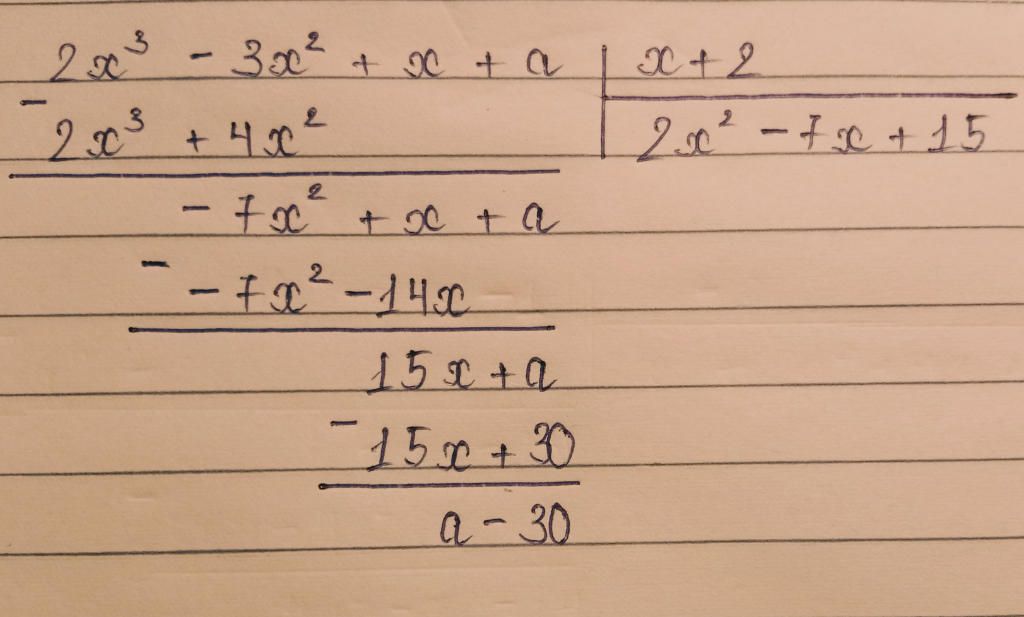 2x³ - 3x² + x + a | x + 2
- 2x³ + 4x² | 2x² - 7x + 15
- 7x² + x + a
- - 7x² - 14x
15x + a
- 15x + 30
a - 30